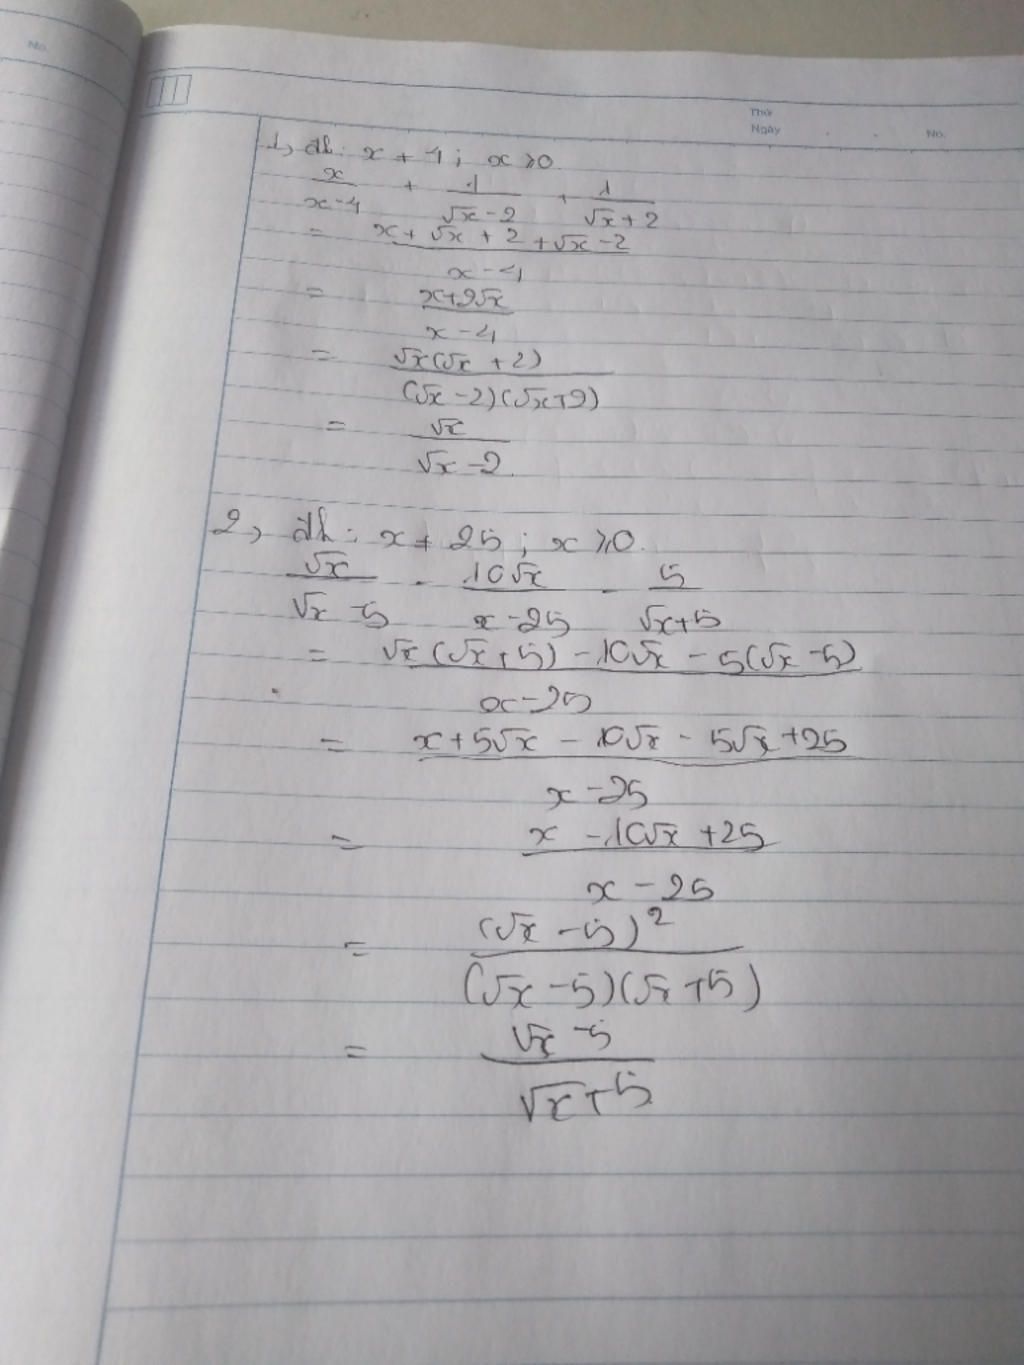 No.
Thứ
Ngày . . No.
1, đk: x ≠ 4; x ≥ 0.
x/(x-4) + 1/(√x-2) + 1/(√x+2)
= (x + √x + 2 + √x - 2)/(x-4)
= (x+2√x)/(x-4)
= √x(√x+2)/((√x-2)(√x+2))
= √x/(√x-2).
2, đk: x ≠ 25; x ≥ 0.
√x/(√x-5) - 10√x/(x-25) - 5/(√x+5)
= (√x(√x+5) - 10√x - 5(√x-5))/(x-25)
= (x+5√x - 10√x - 5√x+25)/(x-25)
= (x - 10√x + 25)/(x-25)
= (√x-5)²/((√x-5)(√x+5))
= (√x-5)/(√x+5)